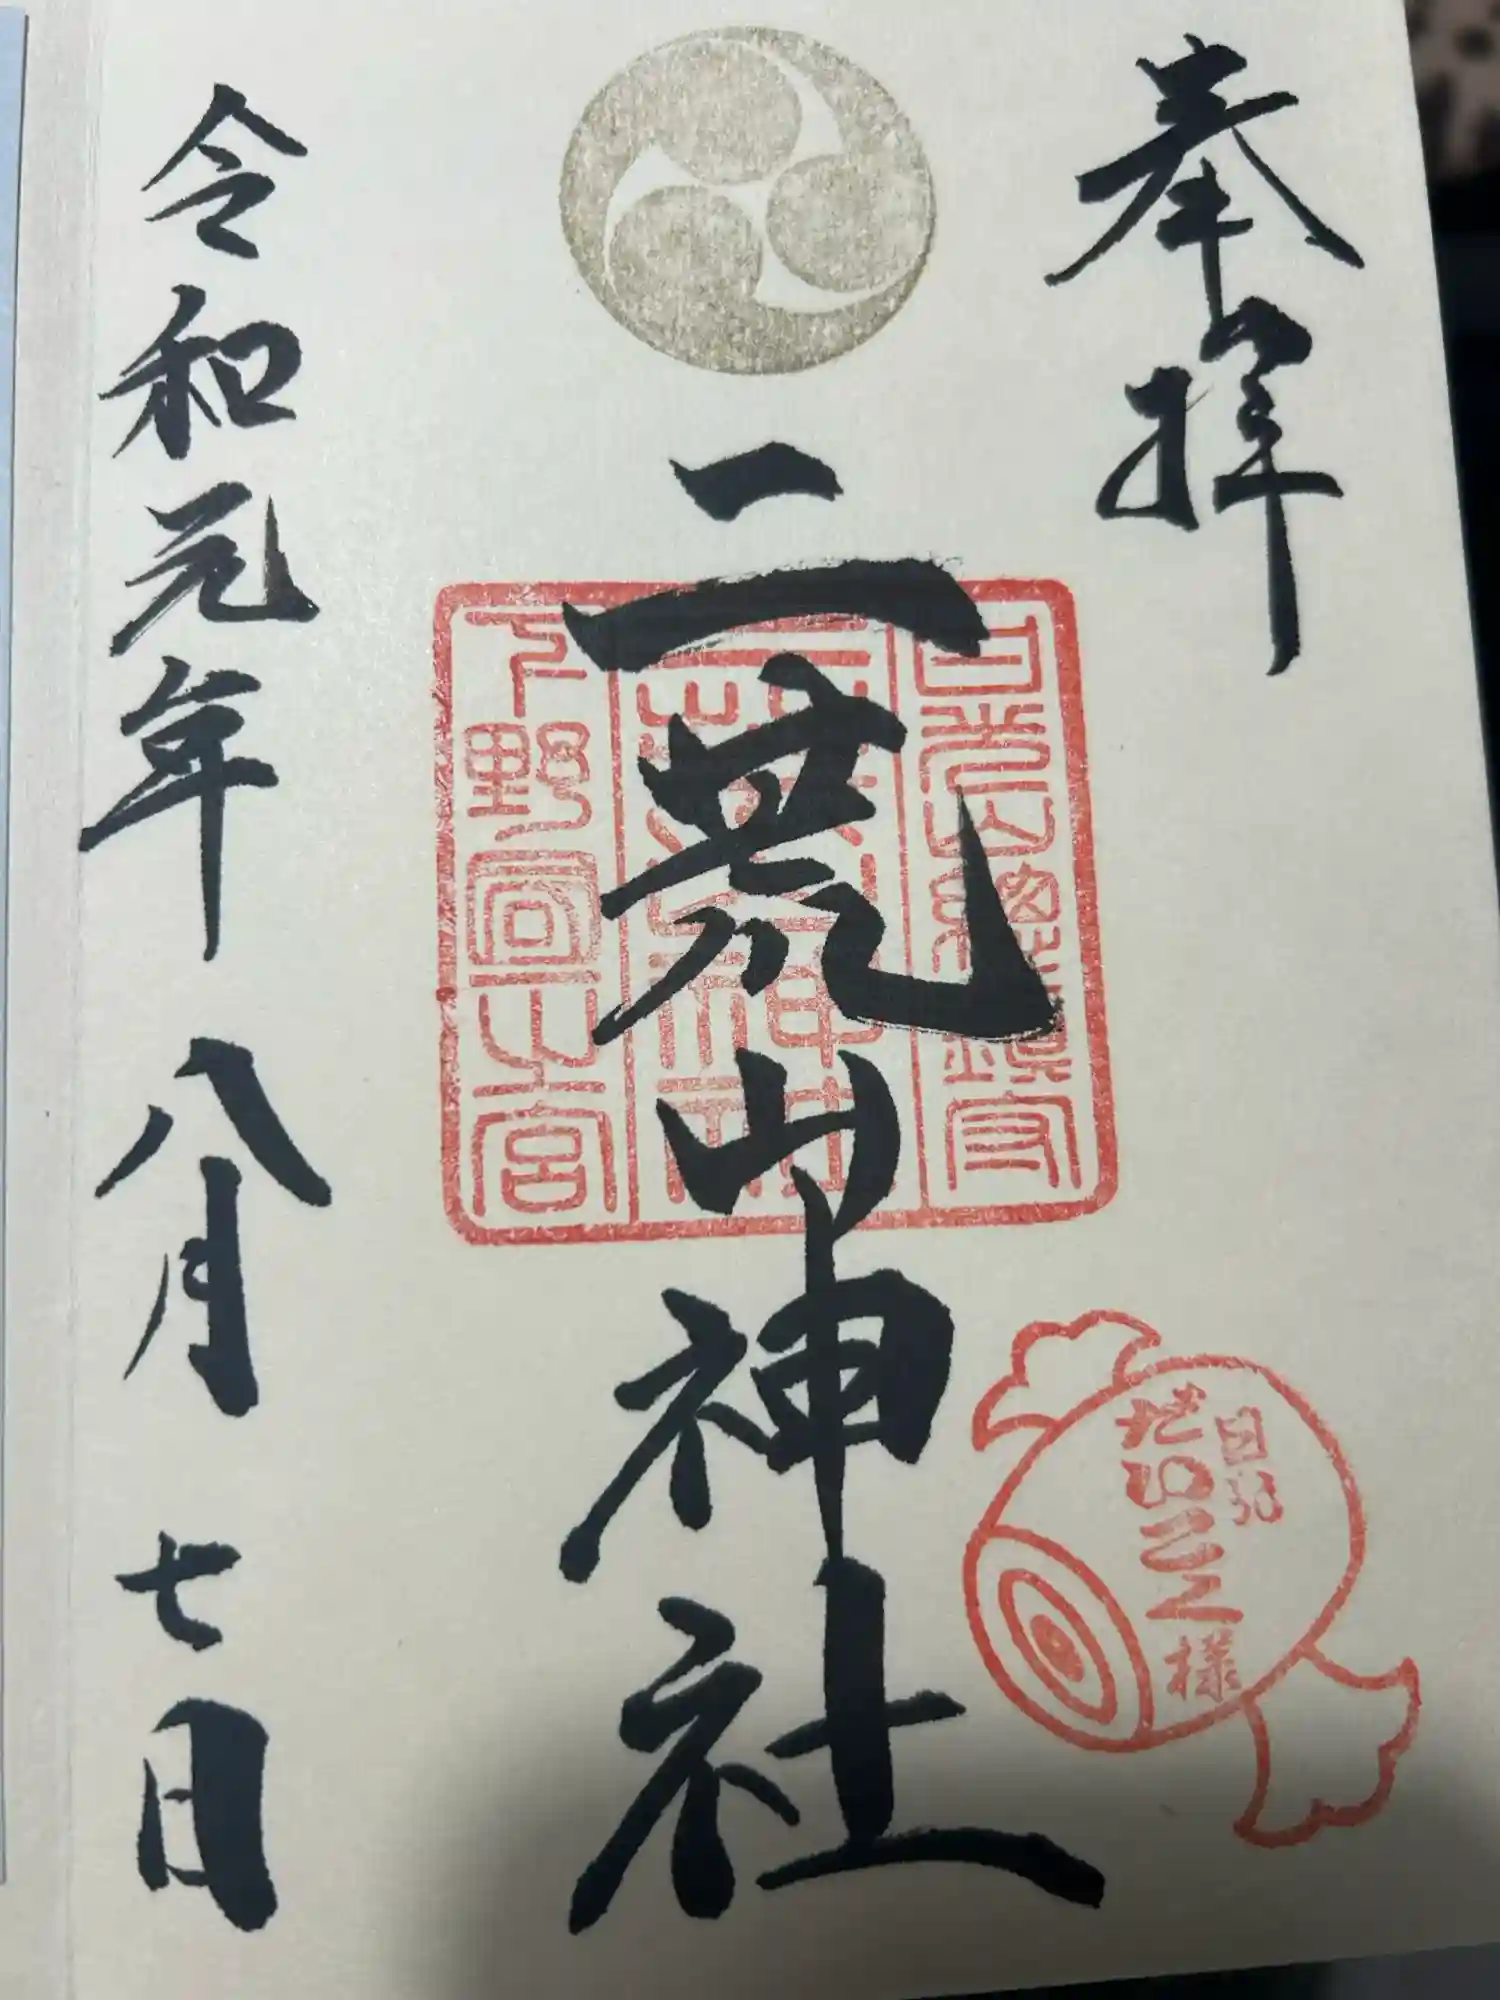 奉拝
二荒山神社
日光山總鎮守
二荒山神社
下野國一之宮
日光
様
令和元年八月七日